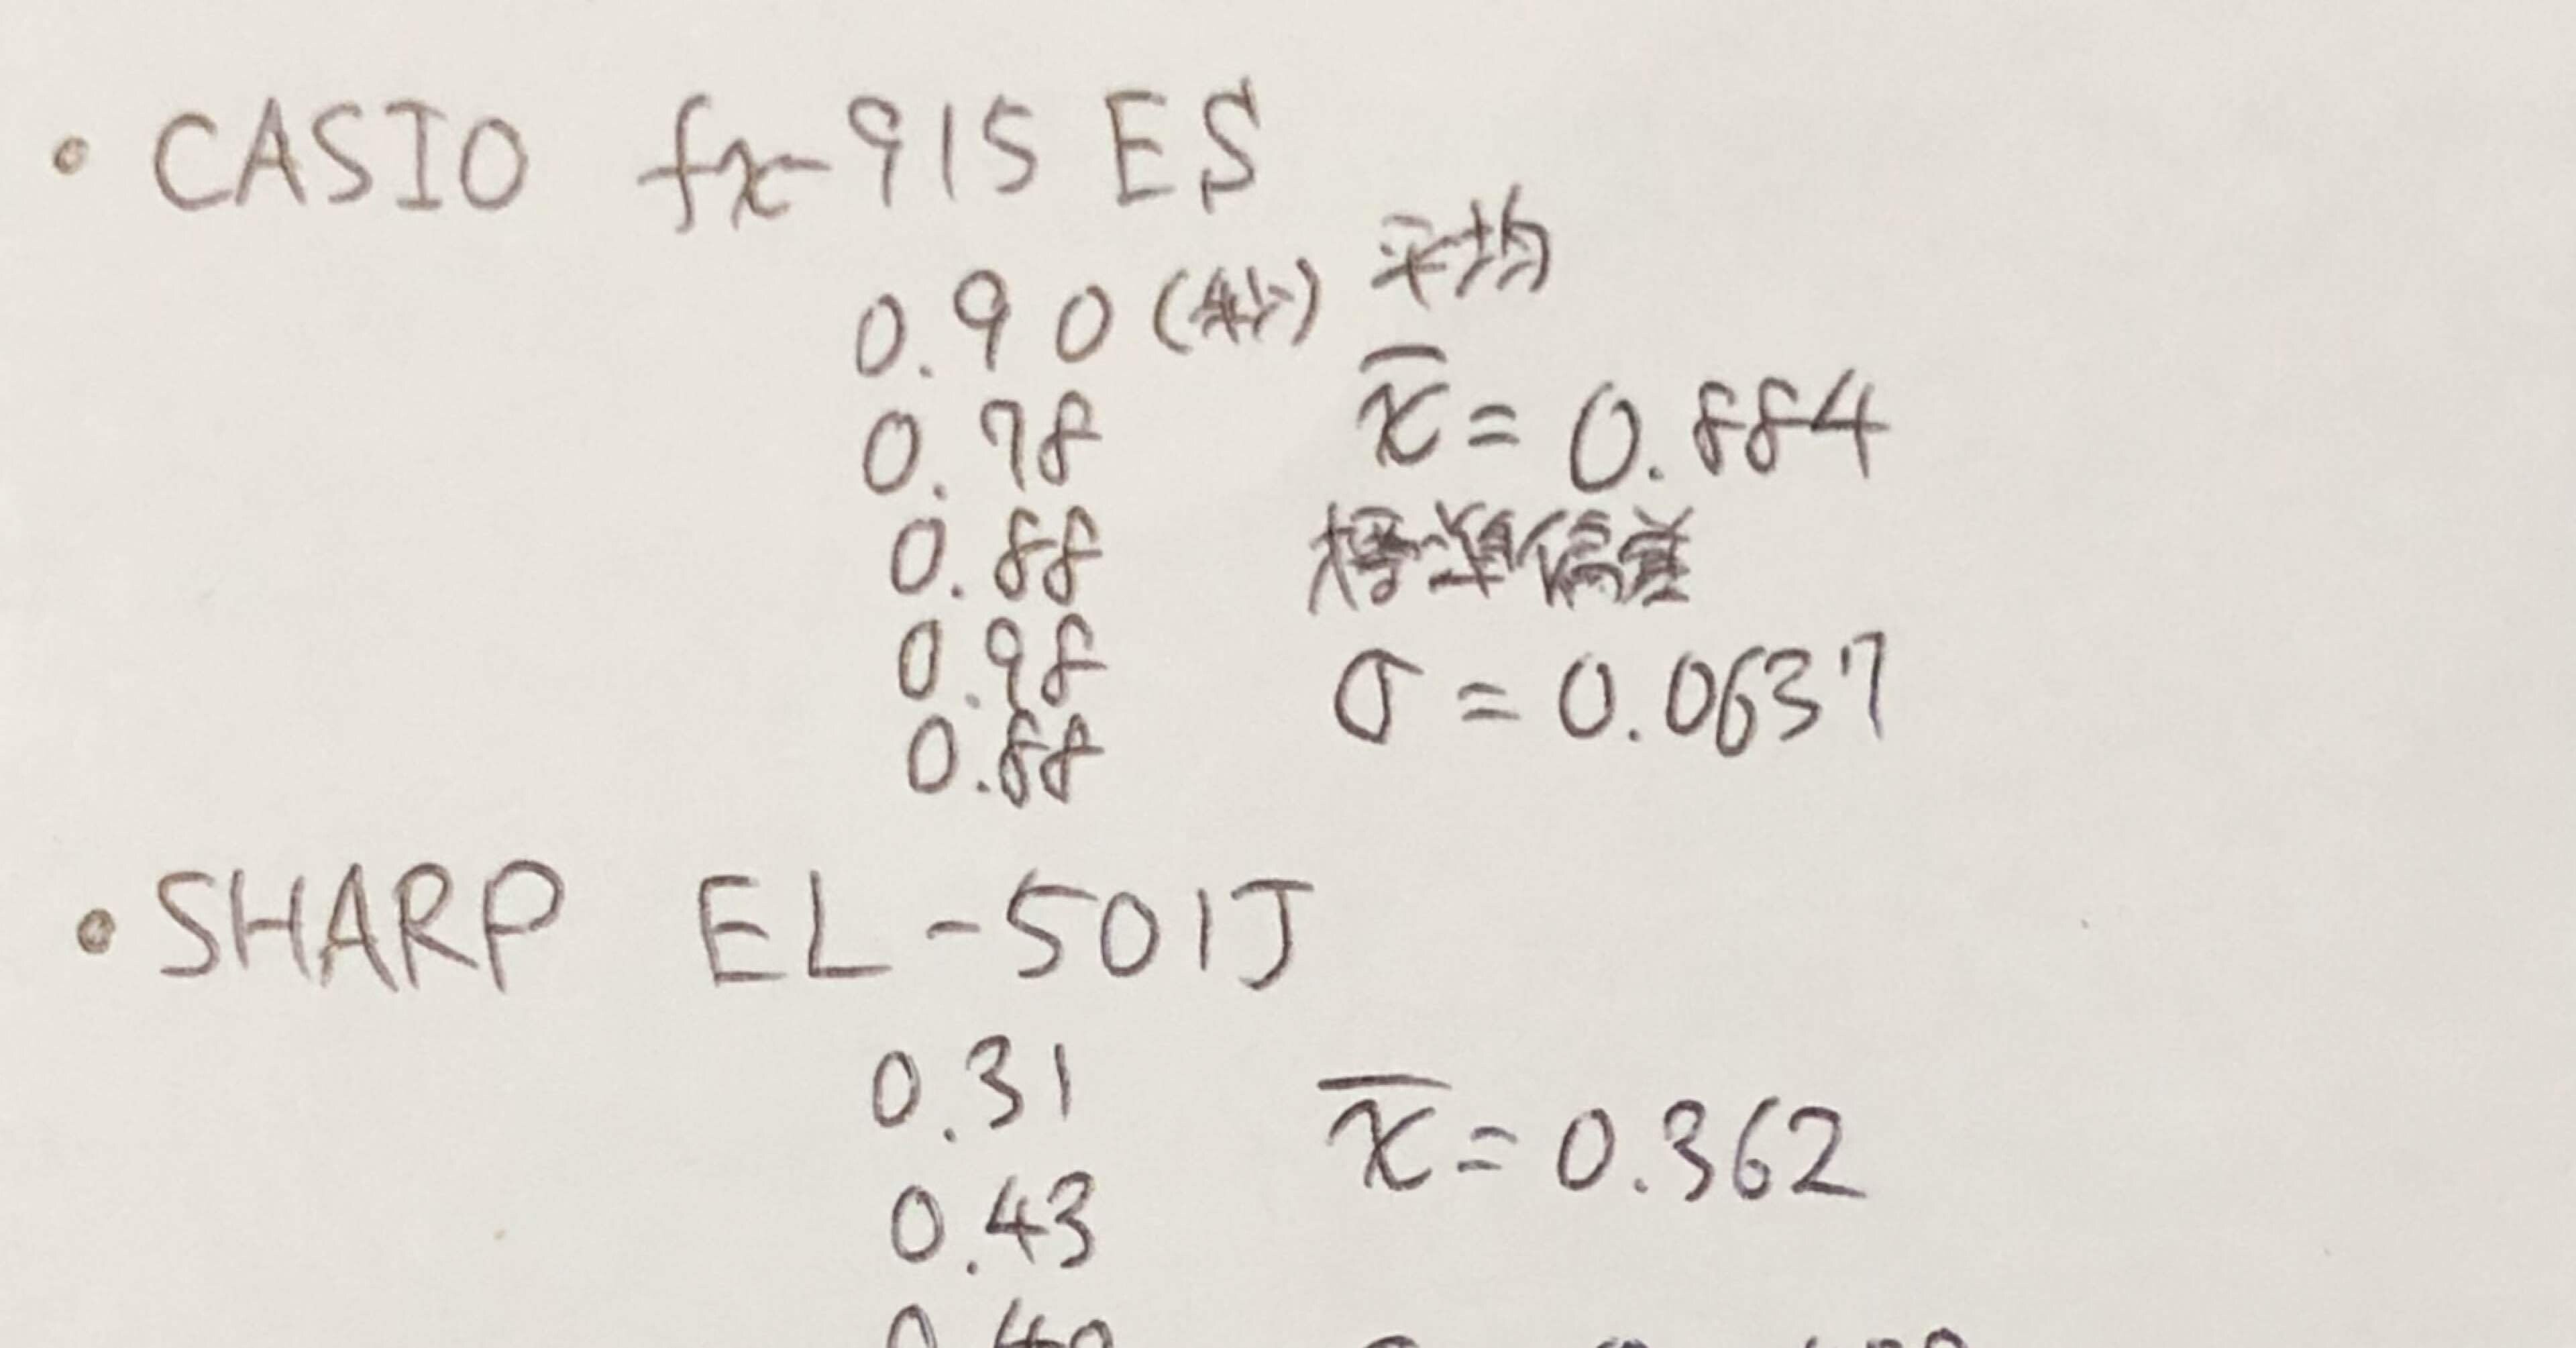 ・CASIO fx-915 ES
0.90 (秒) 平均
0.78 x̄ = 0.884
0.88 標準偏差
0.98 σ = 0.0637
0.88
・SHARP EL-501J
0.31 x̄ = 0.362
0.43